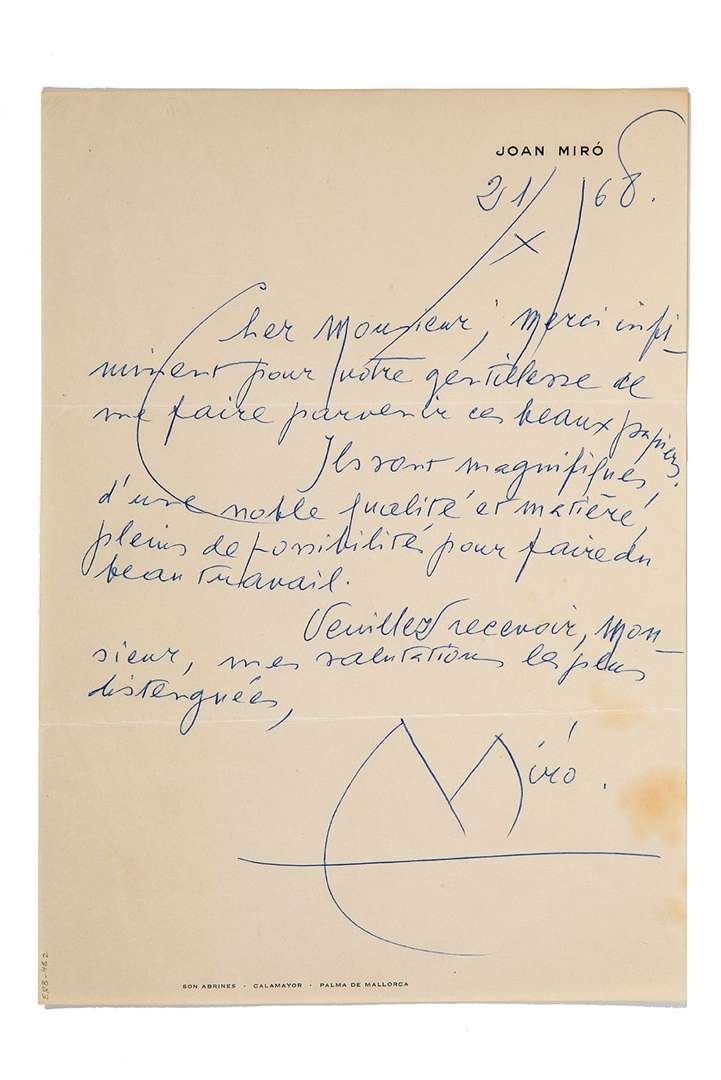 JOAN MIRÓ
21/X/68.
Cher Monsieur, merci infi-
niment pour votre gentillesse de
me faire parvenir ces beaux papiers.
Ils sont magnifiques,
d'une noble qualité et matière,
pleins de possibilités pour faire du
beau travail.
Veuillez recevoir, Mon-
sieur, mes salutations les plus
distinguées,
Miró.
SON ABRINES · CALAMAYOR · PALMA DE MALLORCA